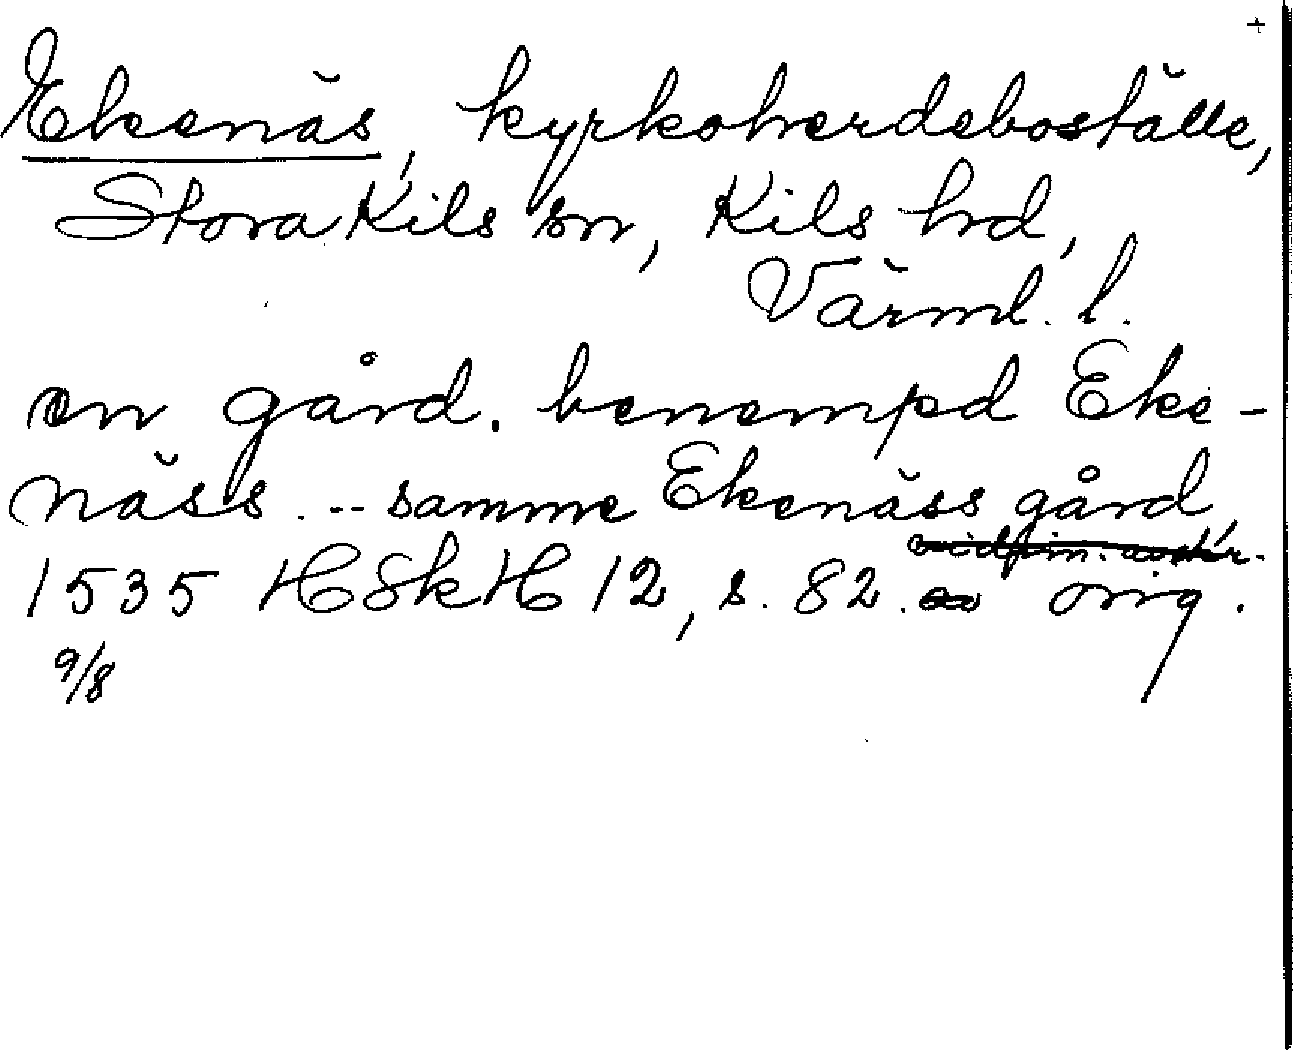 +
Ekenäs, kyrkoherdeboställe,
Stora Kils sn, Kils hd,
Värml. l.
en gård. benempd Eke-
näss. -- samme Ekenäss gård,
1535 HSkH 12, s. 82. orig.
9/8